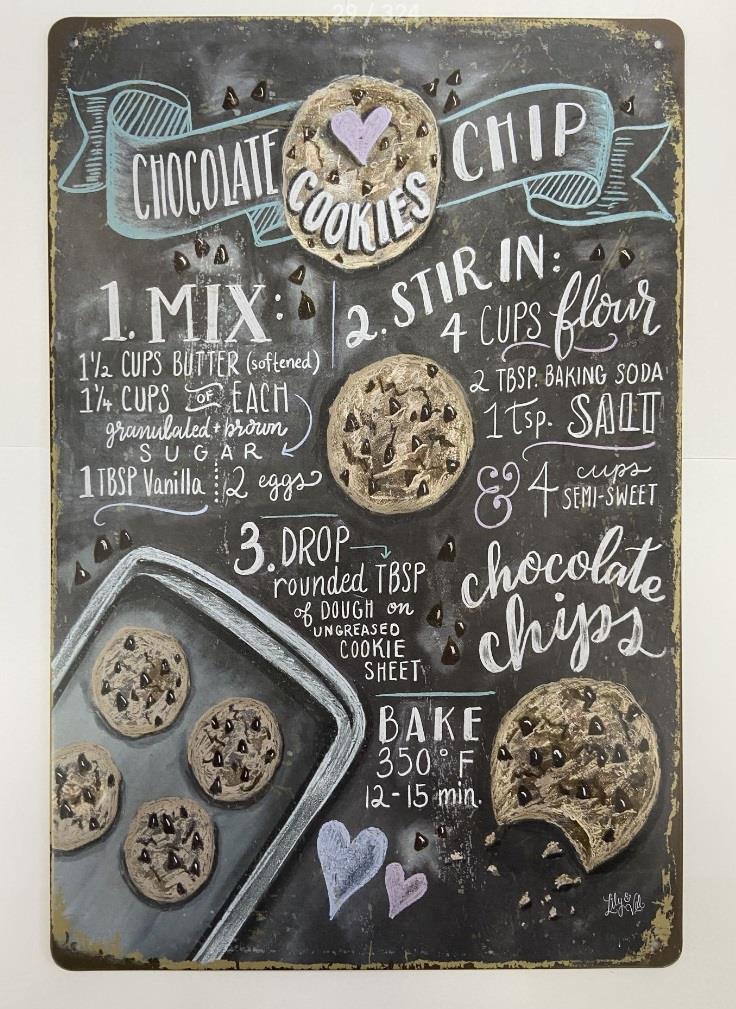 29 / 324
CHOCOLATE CHIP
COOKIES
1. MIX:
1 1/2 CUPS BUTTER (softened)
1 1/4 CUPS OF EACH
granulated + brown
SUGAR
1 TBSP Vanilla 2 eggs
2. STIR IN:
4 CUPS flour
2 TBSP. BAKING SODA
1 tsp. SALT
& 4 cups
SEMI-SWEET
chocolate
chips
3. DROP
rounded TBSP
of DOUGH on
UNGREASED
COOKIE
SHEET
BAKE
350° F
12-15 min.
Lily & Val